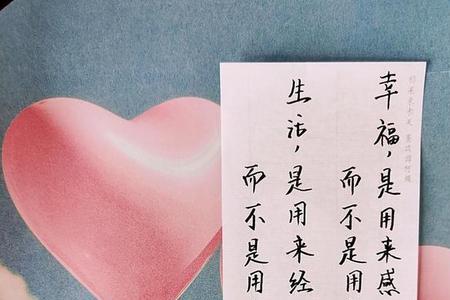 幸福，是用来感
而不是用
生活，是用来经
而不是用